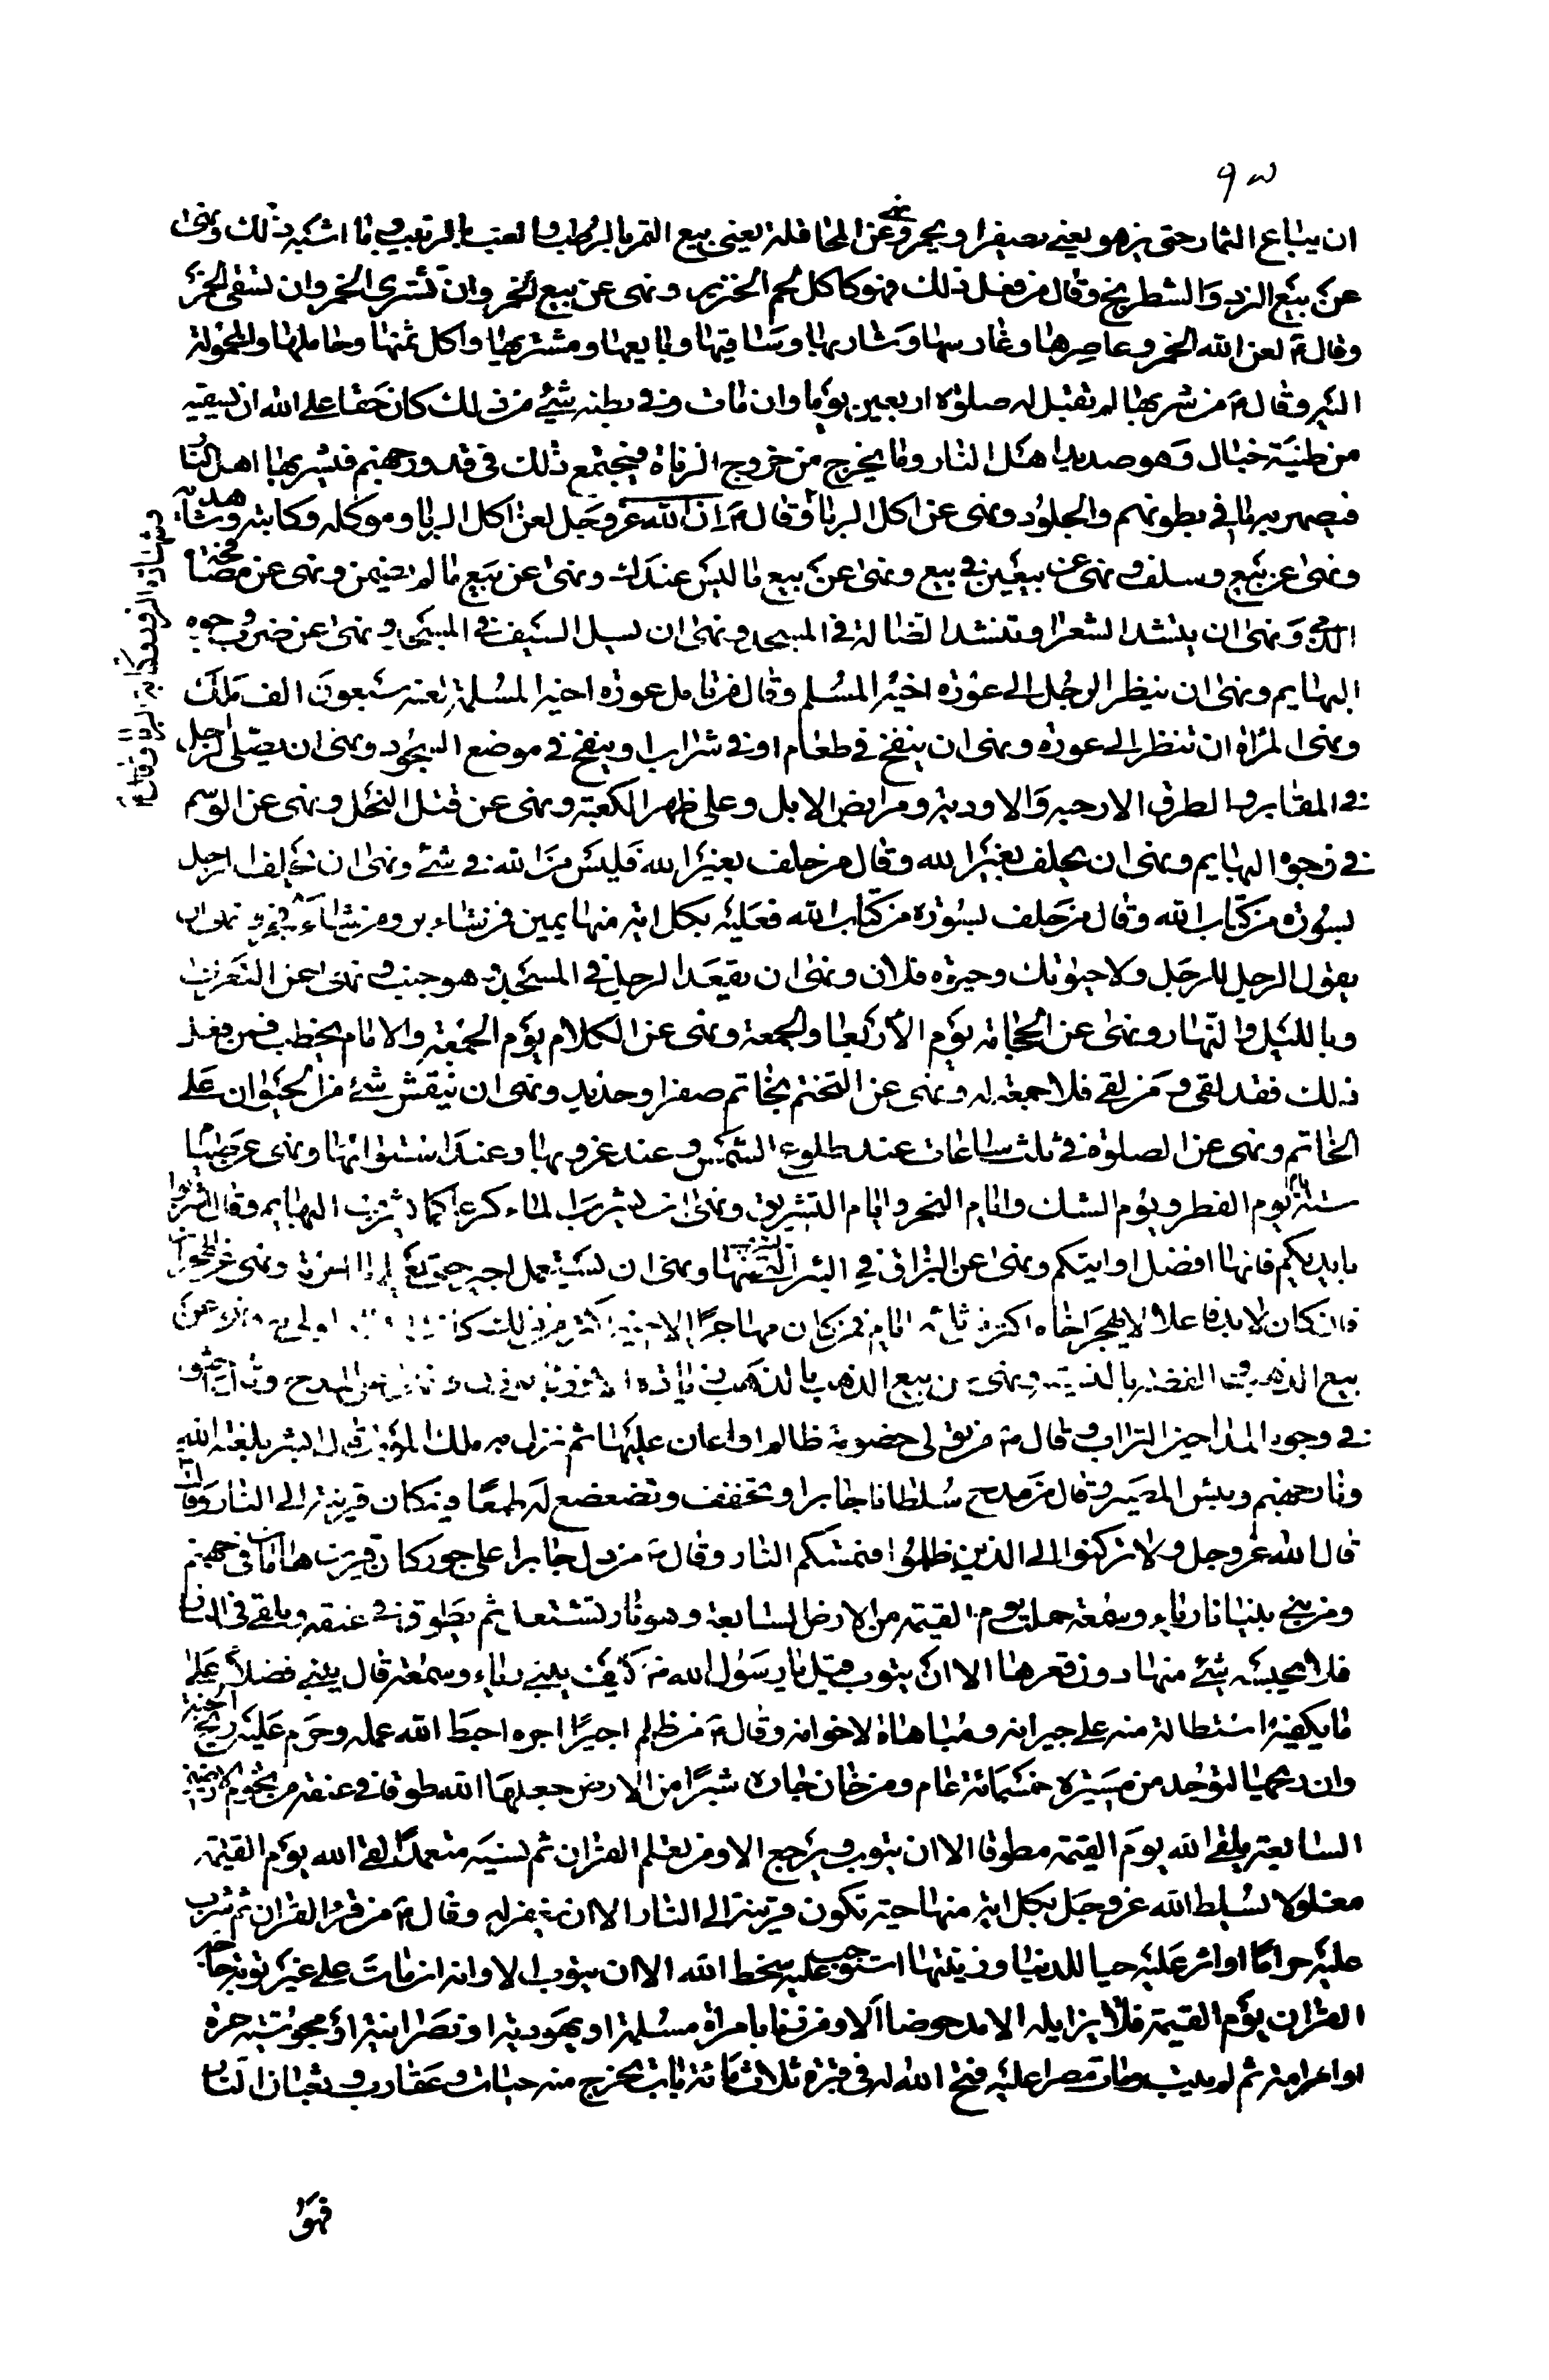 ان يبتاع الثمار حتى تزهو يعني تصفر او تحمر ونهى عن المحاقلة يعني بيع التمر بالرطب والعنب بالزبيب وما اشبه ذلك ونهى
عن بيع النرد والشطرنج وقال من فعل ذلك فهو كاكل لحم الخنزير ونهى عن بيع الخمر وان تشترى الخمر وان تسقى الخمر
وقال لعن الله الخمر وعاصرها وغارسها وشاربها وساقيها وبايعها ومشتريها واكل ثمنها وحاملها والمحمولة
اليه وقال من شربها لم تقبل له صلوة اربعين يوما وان مات وفي بطنه شئ من ذلك كان حقا على الله ان يسقيه
من طينة خبال وهو صديد اهل النار وما يخرج من فروج الزناة فيجتمع ذلك في قدور جهنم فيشربها اهل النار
فيصهر به ما في بطونهم والجلود ونهى عن اكل الربا وقال ان الله عز وجل لعن اكل الربا وموكله وكاتبه وشاهديه
ونهى عن بيع وسلف ونهى عن بيعين في بيع ونهى عن بيع ما ليس عندك ونهى عن بيع ما لم يضمن ونهى عن مصافحة
الذمي ونهى ان ينشد الشعر او تنشد الضالة في المسجد ونهى ان يسل السيف في المسجد ونهى عن ضرب وجوه
البهايم ونهى ان ينظر الرجل الى عورة اخيه المسلم وقال من تامل عورة اخيه المسلم لعنه سبعون الف ملك
ونهى المراة ان تنظر الى عورة ونهى ان ينفخ في طعام او في شراب او ينفخ في موضع السجود ونهى ان يصلي الرجل
في المقابر والطرق الارحبه والاودية ومرابض الابل وعلى ظهر الكعبة ونهى عن قتل النحل ونهى عن الوسم
في وجوه البهايم ونهى ان يحلف بغير الله وقال من حلف بغير الله فليس من الله في شئ ونهى ان يحلف الرجل
بسورة من كتاب الله وقال من حلف بسورة من كتاب الله فعليه بكل اية منها يمين فمن شاء بر ومن شاء فجر ونهى ان
يقول الرجل للرجل لا وحيوتك وحيوة فلان ونهى ان يقعد الرجل في المسجد وهو جنب ونهى عن التعري
بالليل والنهار ونهى عن الحجامة يوم الاربعا والجمعة ونهى عن الكلام يوم الجمعة والامام يخطب فمن فعل
ذلك فقد لغى ومن لغى فلا جمعة له ونهى عن التختم بخاتم صفر او حديد ونهى ان ينقش شئ من الحيوان على
الخاتم ونهى عن الصلوة في ثلث ساعات عند طلوع الشمس وعند غروبها وعند استوائها ونهى عن صيام
ستة ايام يوم الفطر ويوم الشك ويوم النحر وايام التشريق ونهى ان يشرب الماء كرعا كما تشرب البهايم وقال اشربوا
بايديكم فانها افضل اوانيكم ونهى عن البزاق في البئر التي يشرب منها ونهى ان يستعمل اجير حتى يعلم ما اجرته ونهى عن الهجران
فان كان لا بد فاعلا لا يهجر اخاه اكثر من ثلثة ايام فمن كان مهاجرا لاخيه اكثر من ذلك كانت النار اولى به ونهى عن
بيع الذهب والفضة بالنسية ونهى عن بيع الذهب بالذهب زيادة الا وزنا بوزن ونهى عن المدح وقال احثوا
في وجوه المداحين التراب وقال من تولى خصومة ظالم او اعان عليها ثم نزل به ملك الموت قال له ابشر بلعنة الله
ونار جهنم وبئس المصير وقال من مدح سلطانا جابرا وتخفف وتضعضع له طمعا فيه كان قرينه الى النار وقال
قال الله عز وجل ولا تركنوا الى الذين ظلموا فتمسكم النار وقال من دل جابرا على جور كان قرين هامان في جهنم
ومن بنى بنيانا رياء وسمعة حمله يوم القيمة من الارض السابعة وهو نار تشتعل ثم يطوق في عنقه ويلقى في النار
فلا يحبسه شئ منها دون قعرها الا ان يتوب قيل يا رسول الله كيف يبني رياء وسمعة قال يبني فضلا على
ما يكفيه استطالة منه على جيرانه ومباهاة لاخوانه وقال من ظلم اجيرا اجره احبط الله عمله وحرم عليه ريح الجنة
وان ريحها ليوجد من مسيرة خمسمائة عام ومن خان جاره شبرا من الارض جعلها الله طوقا في عنقه من تخوم الارضين
السابعة يلقى الله يوم القيمة مطوقا الا ان يتوب ويرجع الا ومن تعلم القران ثم نسيه متعمدا لقى الله يوم القيمة
مغلولا يسلط الله عز وجل بكل اية منها حية تكون قرينه الى النار الا ان يغفر له وقال من قرء القران ثم شرب
عليه حراما او اثر عليه حبا للدنيا وزينتها استوجب عليه سخط الله الا ان يتوب الا وانه ان مات على غير توبة حاجه
القران يوم القيمة فلا يزايله الا مدحوضا الا ومن زنا بامراة مسلمة او يهودية او نصرانية او مجوسية حرة
او امة ثم لم يتب ومات مصرا عليه فتح الله له في قبره ثلاثمائة باب تخرج منه حيات وعقارب وثعبان النار
فهو